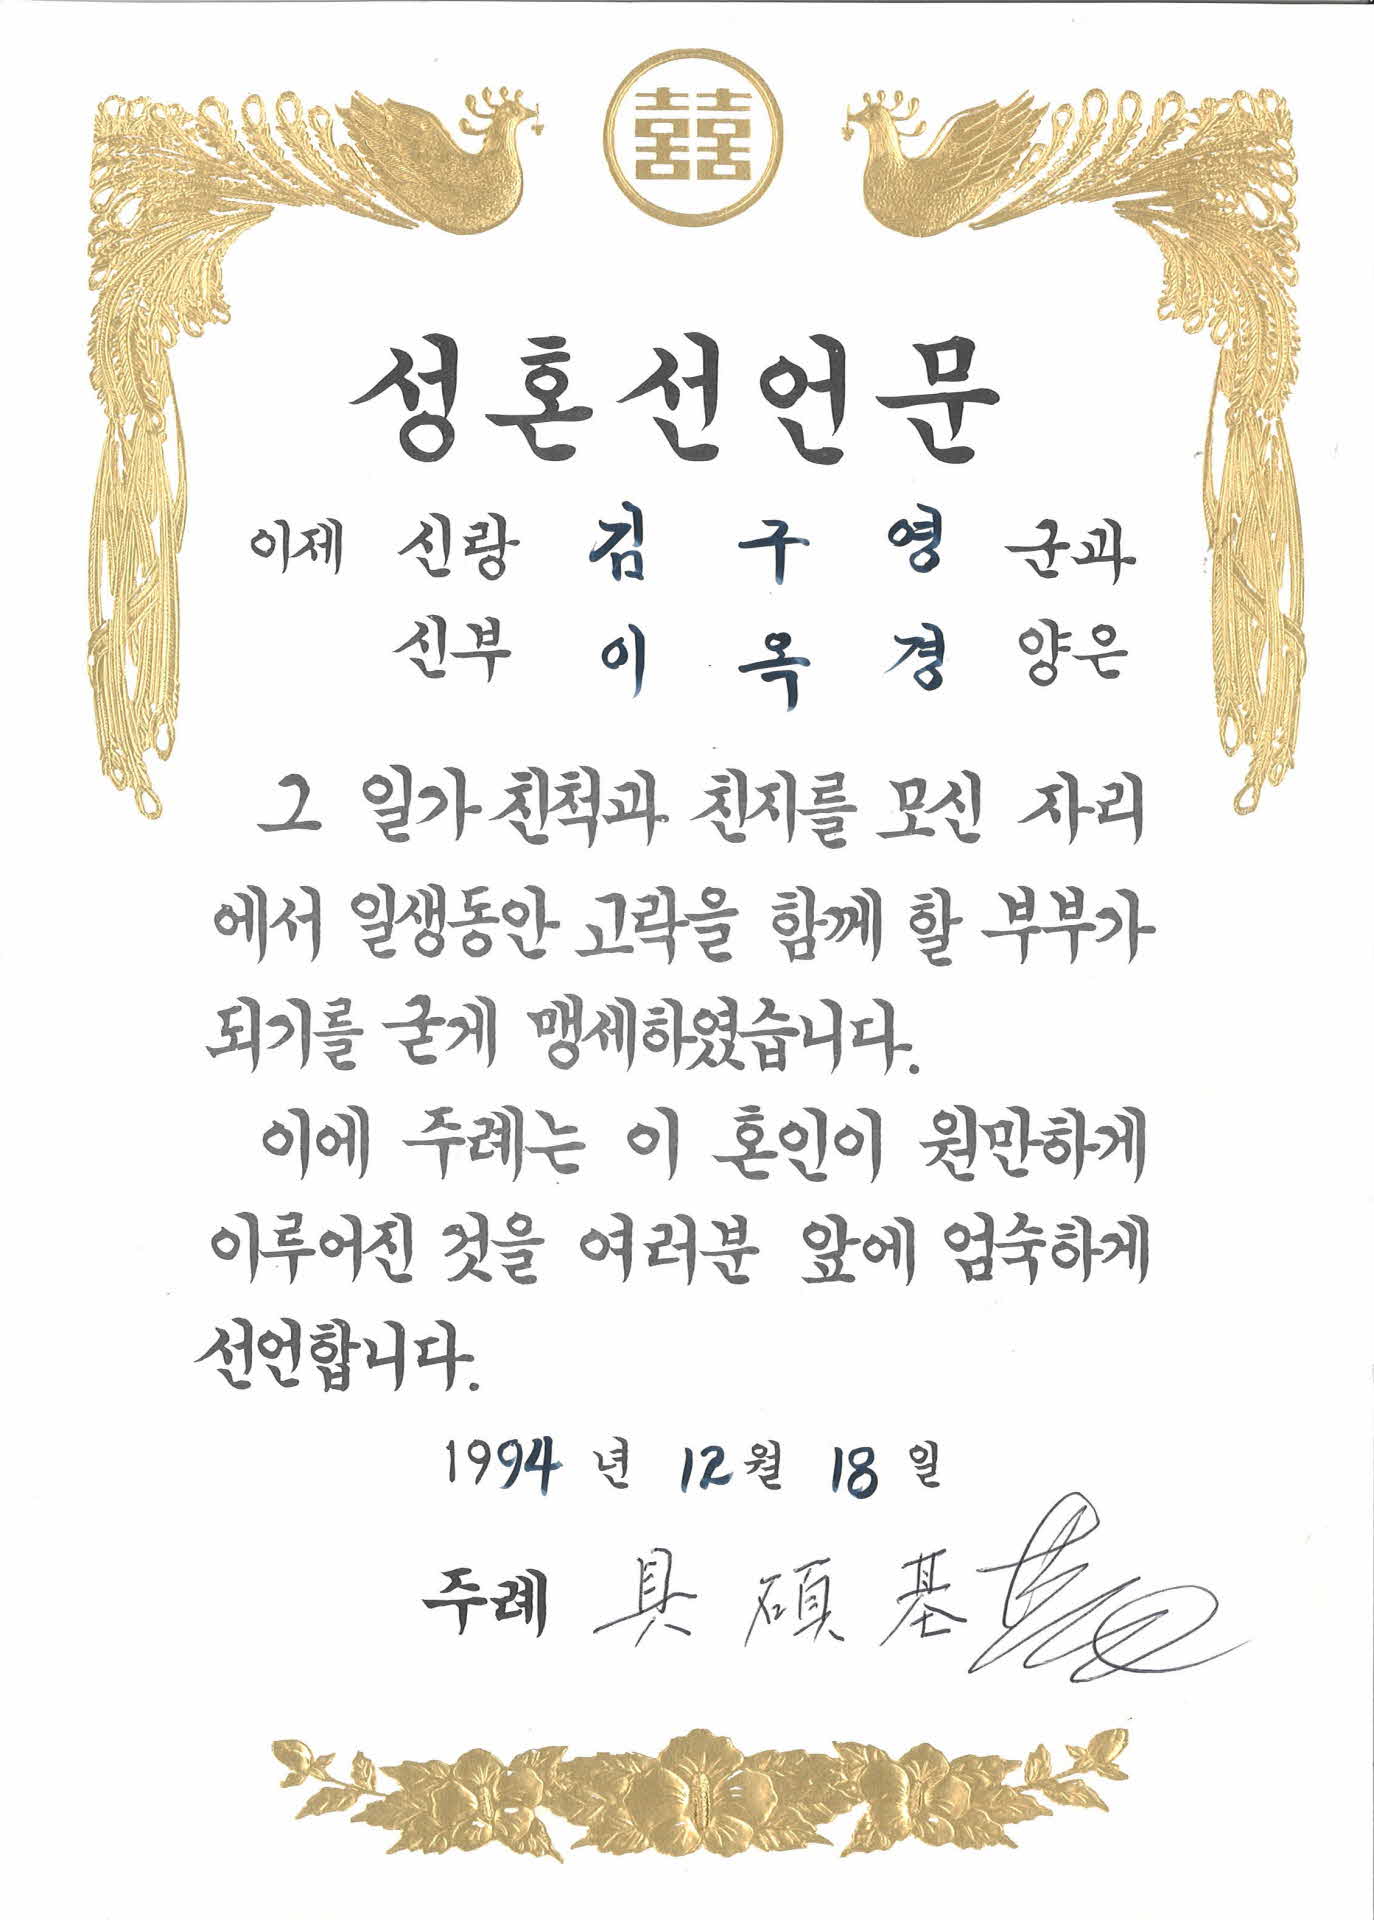 囍
성혼선언문
이제 신랑 김 구 영 군과
신부 이 옥 경 양은
그 일가 친척과 친지를 모신 자리
에서 일생동안 고락을 함께 할 부부가
되기를 굳게 맹세하였습니다.
이에 주례는 이 혼인이 원만하게
이루어진 것을 여러분 앞에 엄숙하게
선언합니다.
1994 년 12월 18 일
주례 具 碩 基